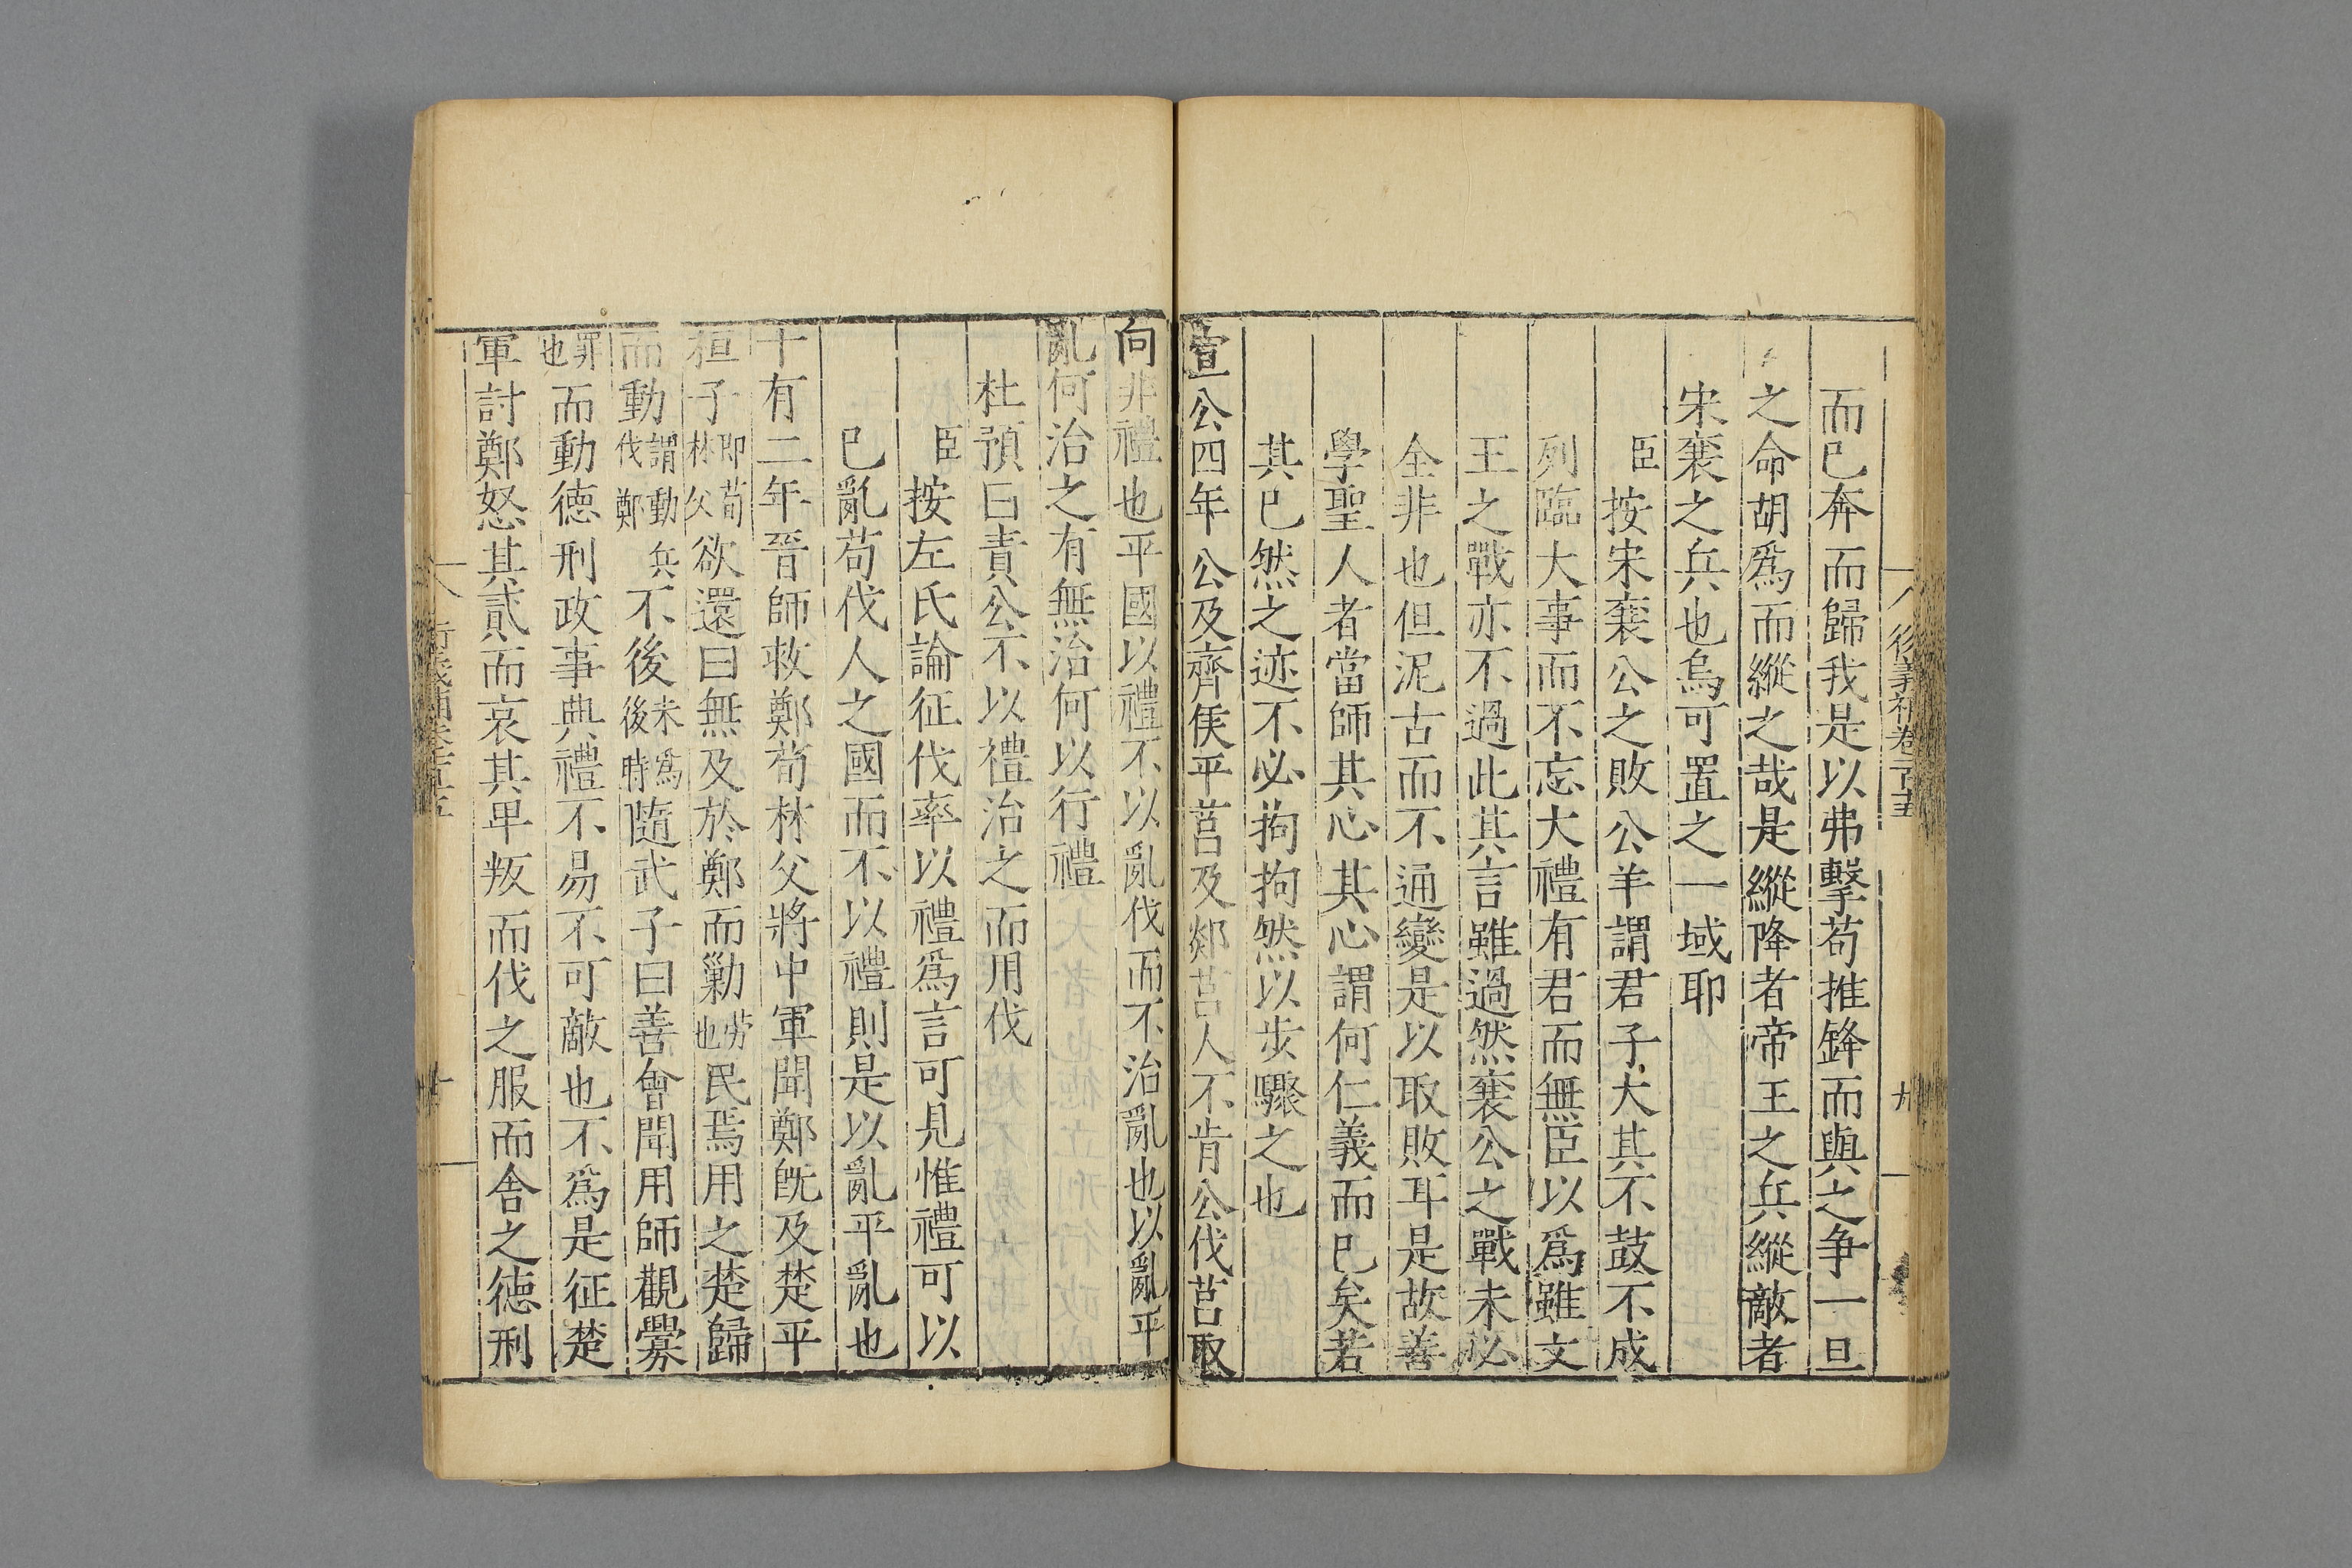 而已奔而歸我是以弗擊苟推鋒而與之争一旦
之命胡爲而縱之哉是縱降者帝王之兵縱敵者
宋襄之兵也烏可置之一域耶
臣按宋襄公之敗公羊謂君子大其不鼓不成
列臨大事而不忘大禮有君而無臣以爲雖文
王之戰亦不過此其言雖過然襄公之戰未必
全非也但泥古而不通變是以取敗耳是故善
學聖人者當師其心其心謂何仁義而已矣若
其已然之迹不必拘拘然以步驟之也
宣公四年公及齊侯平莒及郯莒人不肯公伐莒取
向非禮也平國以禮不以亂伐而不治亂也以亂平
亂何治之有無治何以行禮
杜預曰責公不以禮治之而用伐
臣按左氏論征伐率以禮爲言可見惟禮可以
已亂苟伐人之國而不以禮則是以亂平亂也
十有二年晉師救鄭荀林父將中軍聞鄭既及楚平
桓子即荀林父欲還曰無及於鄭而勦勞也民焉用之楚歸
而動謂動兵伐鄭不後未爲後時隨武子曰善會聞用師觀釁
罪也而動德刑政事典禮不易不可敵也不爲是征楚
軍討鄭怒其貳而哀其卑叛而伐之服而舍之德刑